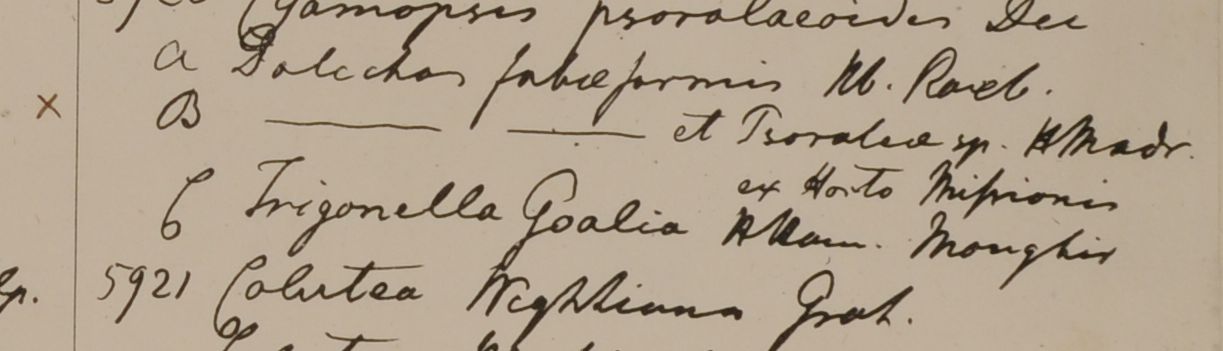 Cyamopsis psoralaeoides Dec
a Dolichos fabæformis Hb. Roxb.
× B ——— ——— et Psoraleæ sp. HMadr.
ex Horto Missionis
C Trigonella Goalia HHam. Monghir
5921 Colutea Wightiana Grah.